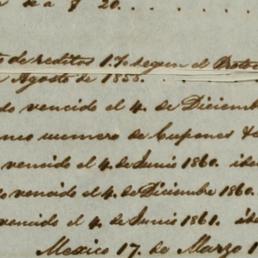 de a $ 20...
de reditos 1.% segun el Proto
Agosto de 1855.
do vencido el 4. de Diciemb
mero de Cupones
vencido el 4. de Junio 1860. id
do vencido el 4. de Diciembre 1860.
vencido el 4. de Junio 1861. id
Mexico 17. de Marzo 1